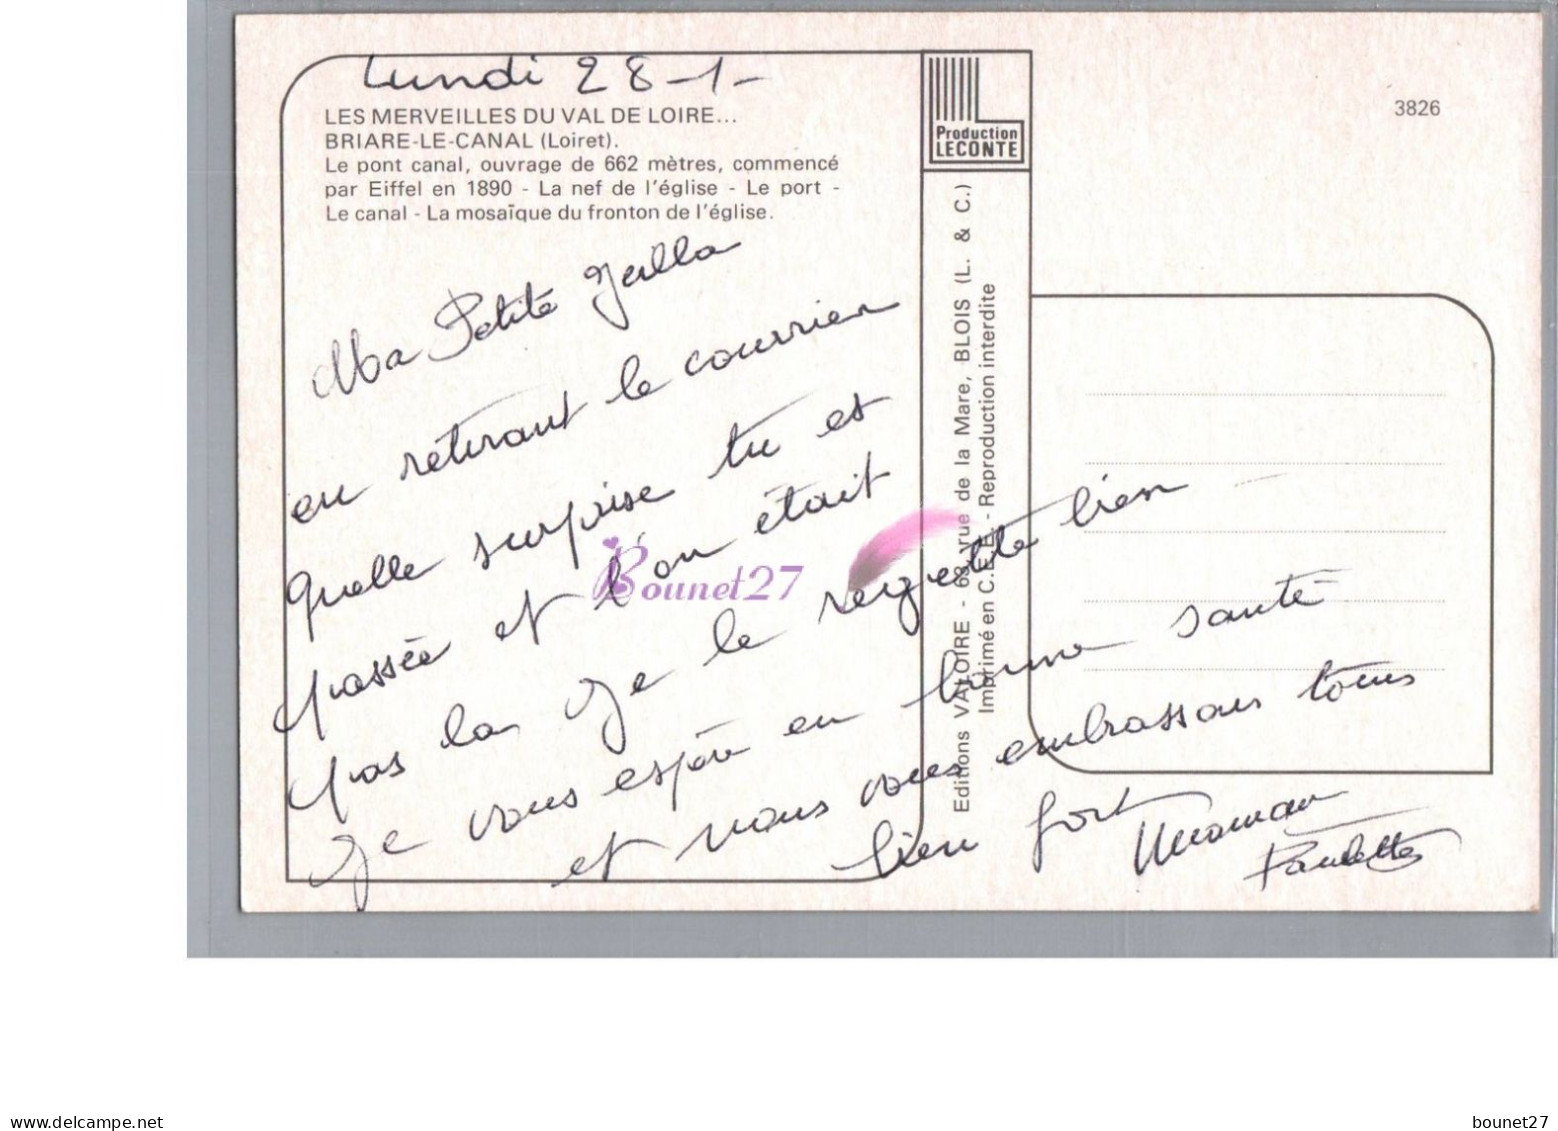 Lundi 28-1-
LES MERVEILLES DU VAL DE LOIRE...
BRIARE-LE-CANAL (Loiret).
Le pont canal, ouvrage de 662 mètres, commencé
par Eiffel en 1890 - La nef de l'église - Le port -
Le canal - La mosaïque du fronton de l'église.
Production
LECONTE
3826
Ma Petite
en retirant le courrier
quelle surprise tu es
passée et l'on était
pas la je le regrette bien
je vous espère en bonne santé
et nous vous embrassons tous
bien fort Maman
Paulette
Editions VALOIRE - 63, rue de la Mare, BLOIS (L. & C.)
Imprimé en C.E.E. - Reproduction interdite
Bounet27
www.delcampe.net
bounet27